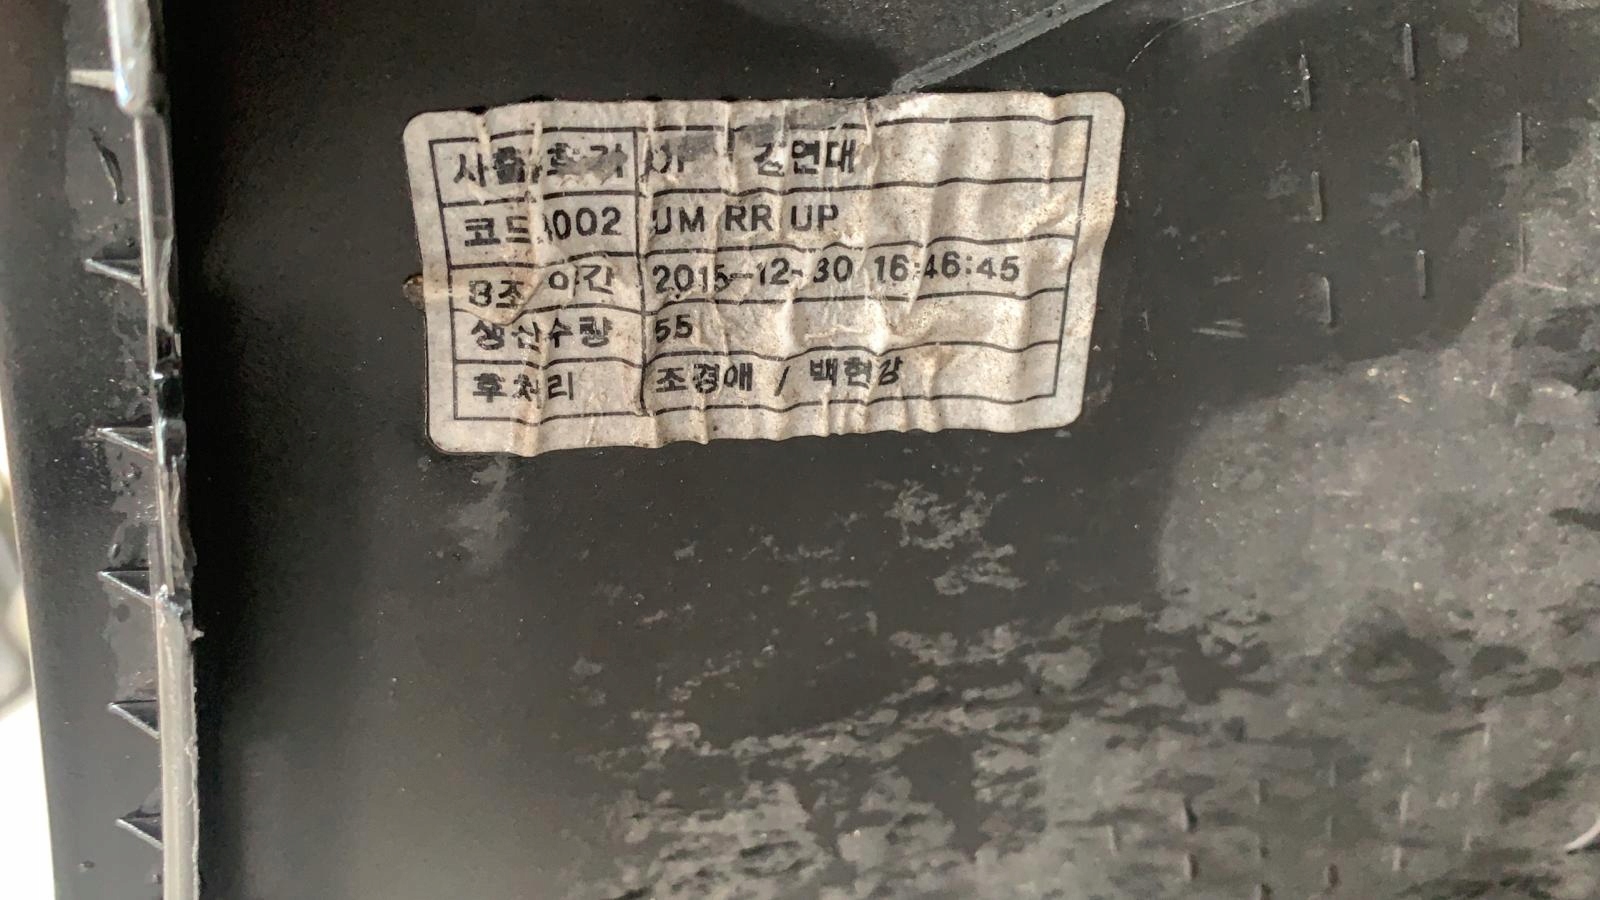 김연대
코드 A002 UM RR UP
B조 야간 2015-12-30 16:46:45
생산수량 55
후처리 조경애 / 백현강